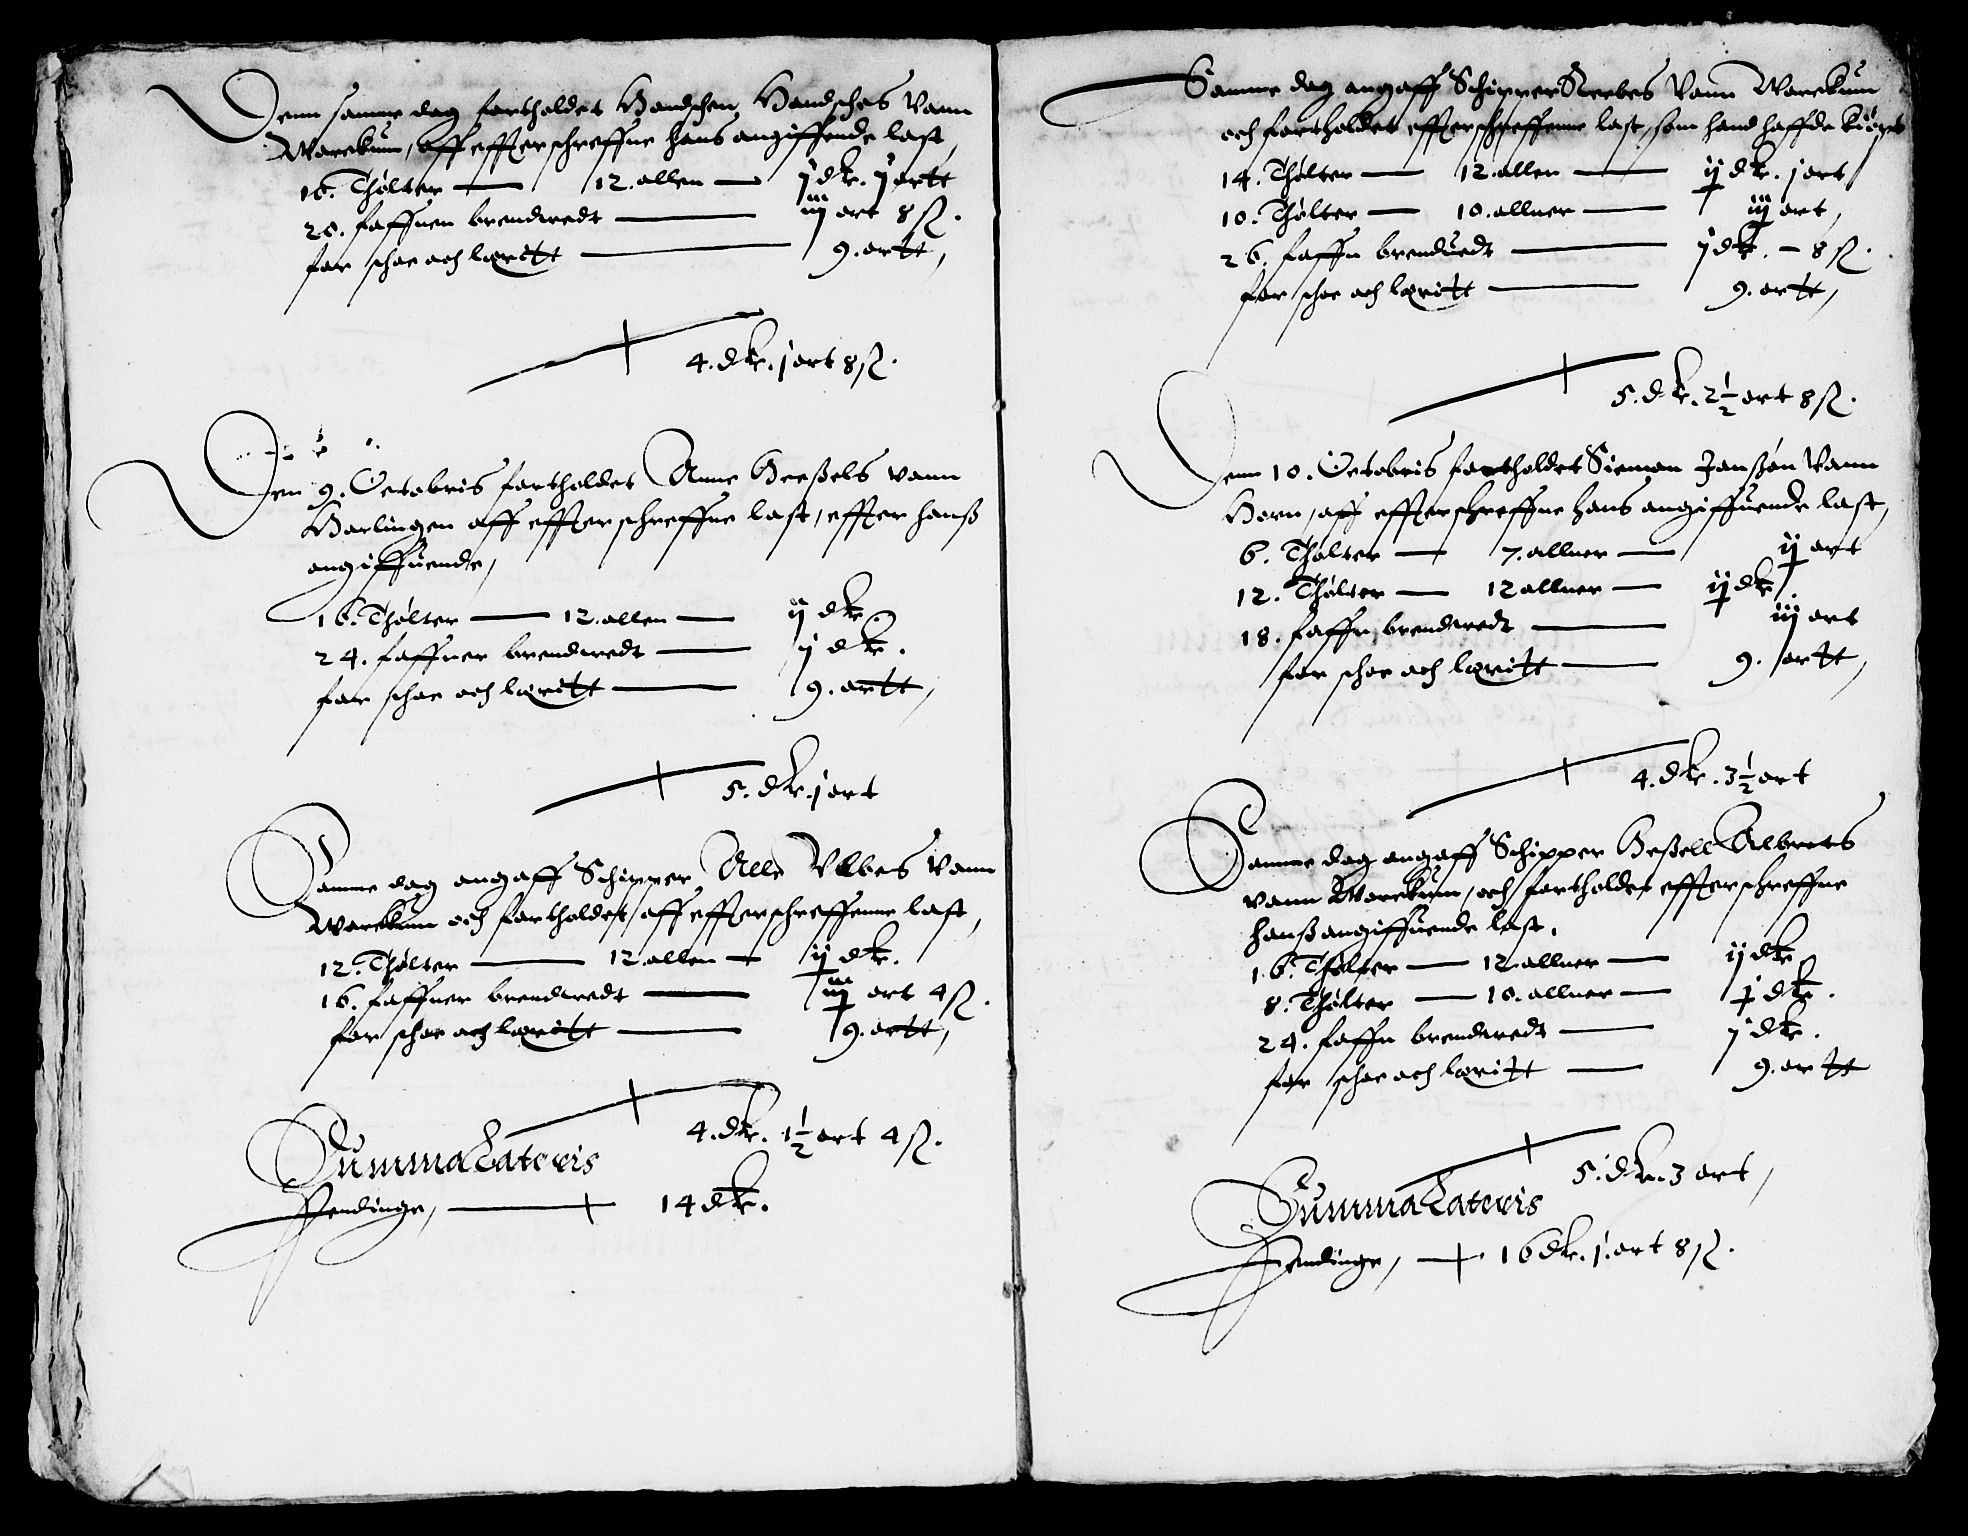 Denn samme dag fortholdet Handschen Handsches vann
Warckum, aff effterschreffne hans angiffende last,
16. Thølter — 12. allen — ij dlr. j ortt
20. faffnen brendwedt — iij ort 8 ß.
for schoe och lærritt — 9. ortt,
4. dlr. j ort 8 ß.
Den 9. Octobris fortholdet Anne Heeßels vann
Harlingen aff effterschreffne last, effter hanß
angiffuende,
16. Thølter — 12. allen — ij dlr.
24. faffner brendwedt — j dlr.
for schoe och lærritt — 9. ortt,
5. dlr. j ort
Samme dag angaff Schipper Alle Vlbes vann
Warckum och fortholdet, aff effterschreffenne last,
12. Thølter — 12. allen — ij dlr.
16. faffner brendwedt — iij ort 4 ß.
for schoe och lærritt — 9. ortt,
4. dlr. 1½ ort 4 ß.
Summa Lateris
Pendinge, — 14 dlr.
Samme dag angaff Schipper Reebes vann Warckum
och fortholdet effterschreffenne last, som hand haffde kiøpt
14. Thølter — 12. allen — ij dlr. j ort
10. Thølter — 10. allner — iij ort,
26. faffn brenduedt — j dlr. – 8 ß.
for schoe och lærritt — 9. ortt,
5. dlr. 2½ ort 8 ß.
Denn 10. Octobris fortholdet Siemon Janßøn vann
Horn, aff effterschreffne hans angiffuende last,
6. Thølter — 7. allner — ij ort
12. Thølter — 12 allner — ij dlr.
18. faffn brendwedt — iij ort
for schoe och lærritt — 9. ortt,
4. dlr. 3½ ort
Samme dag angaff Schipper Heßell Albrets
vann Warckum, och fortholdet effterschreffne
hanß angiffuende last,
16. Thølter — 12. allner — ij dlr
8. Thølter — 10. allner — j dlr.
24. faffn brendwedt — j dlr.
for schoe och lærritt — 9. ortt
5. dlr. 3 ort,
Summa Lateris
Pendinge, — 16 dlr. j. ort 8 ß.